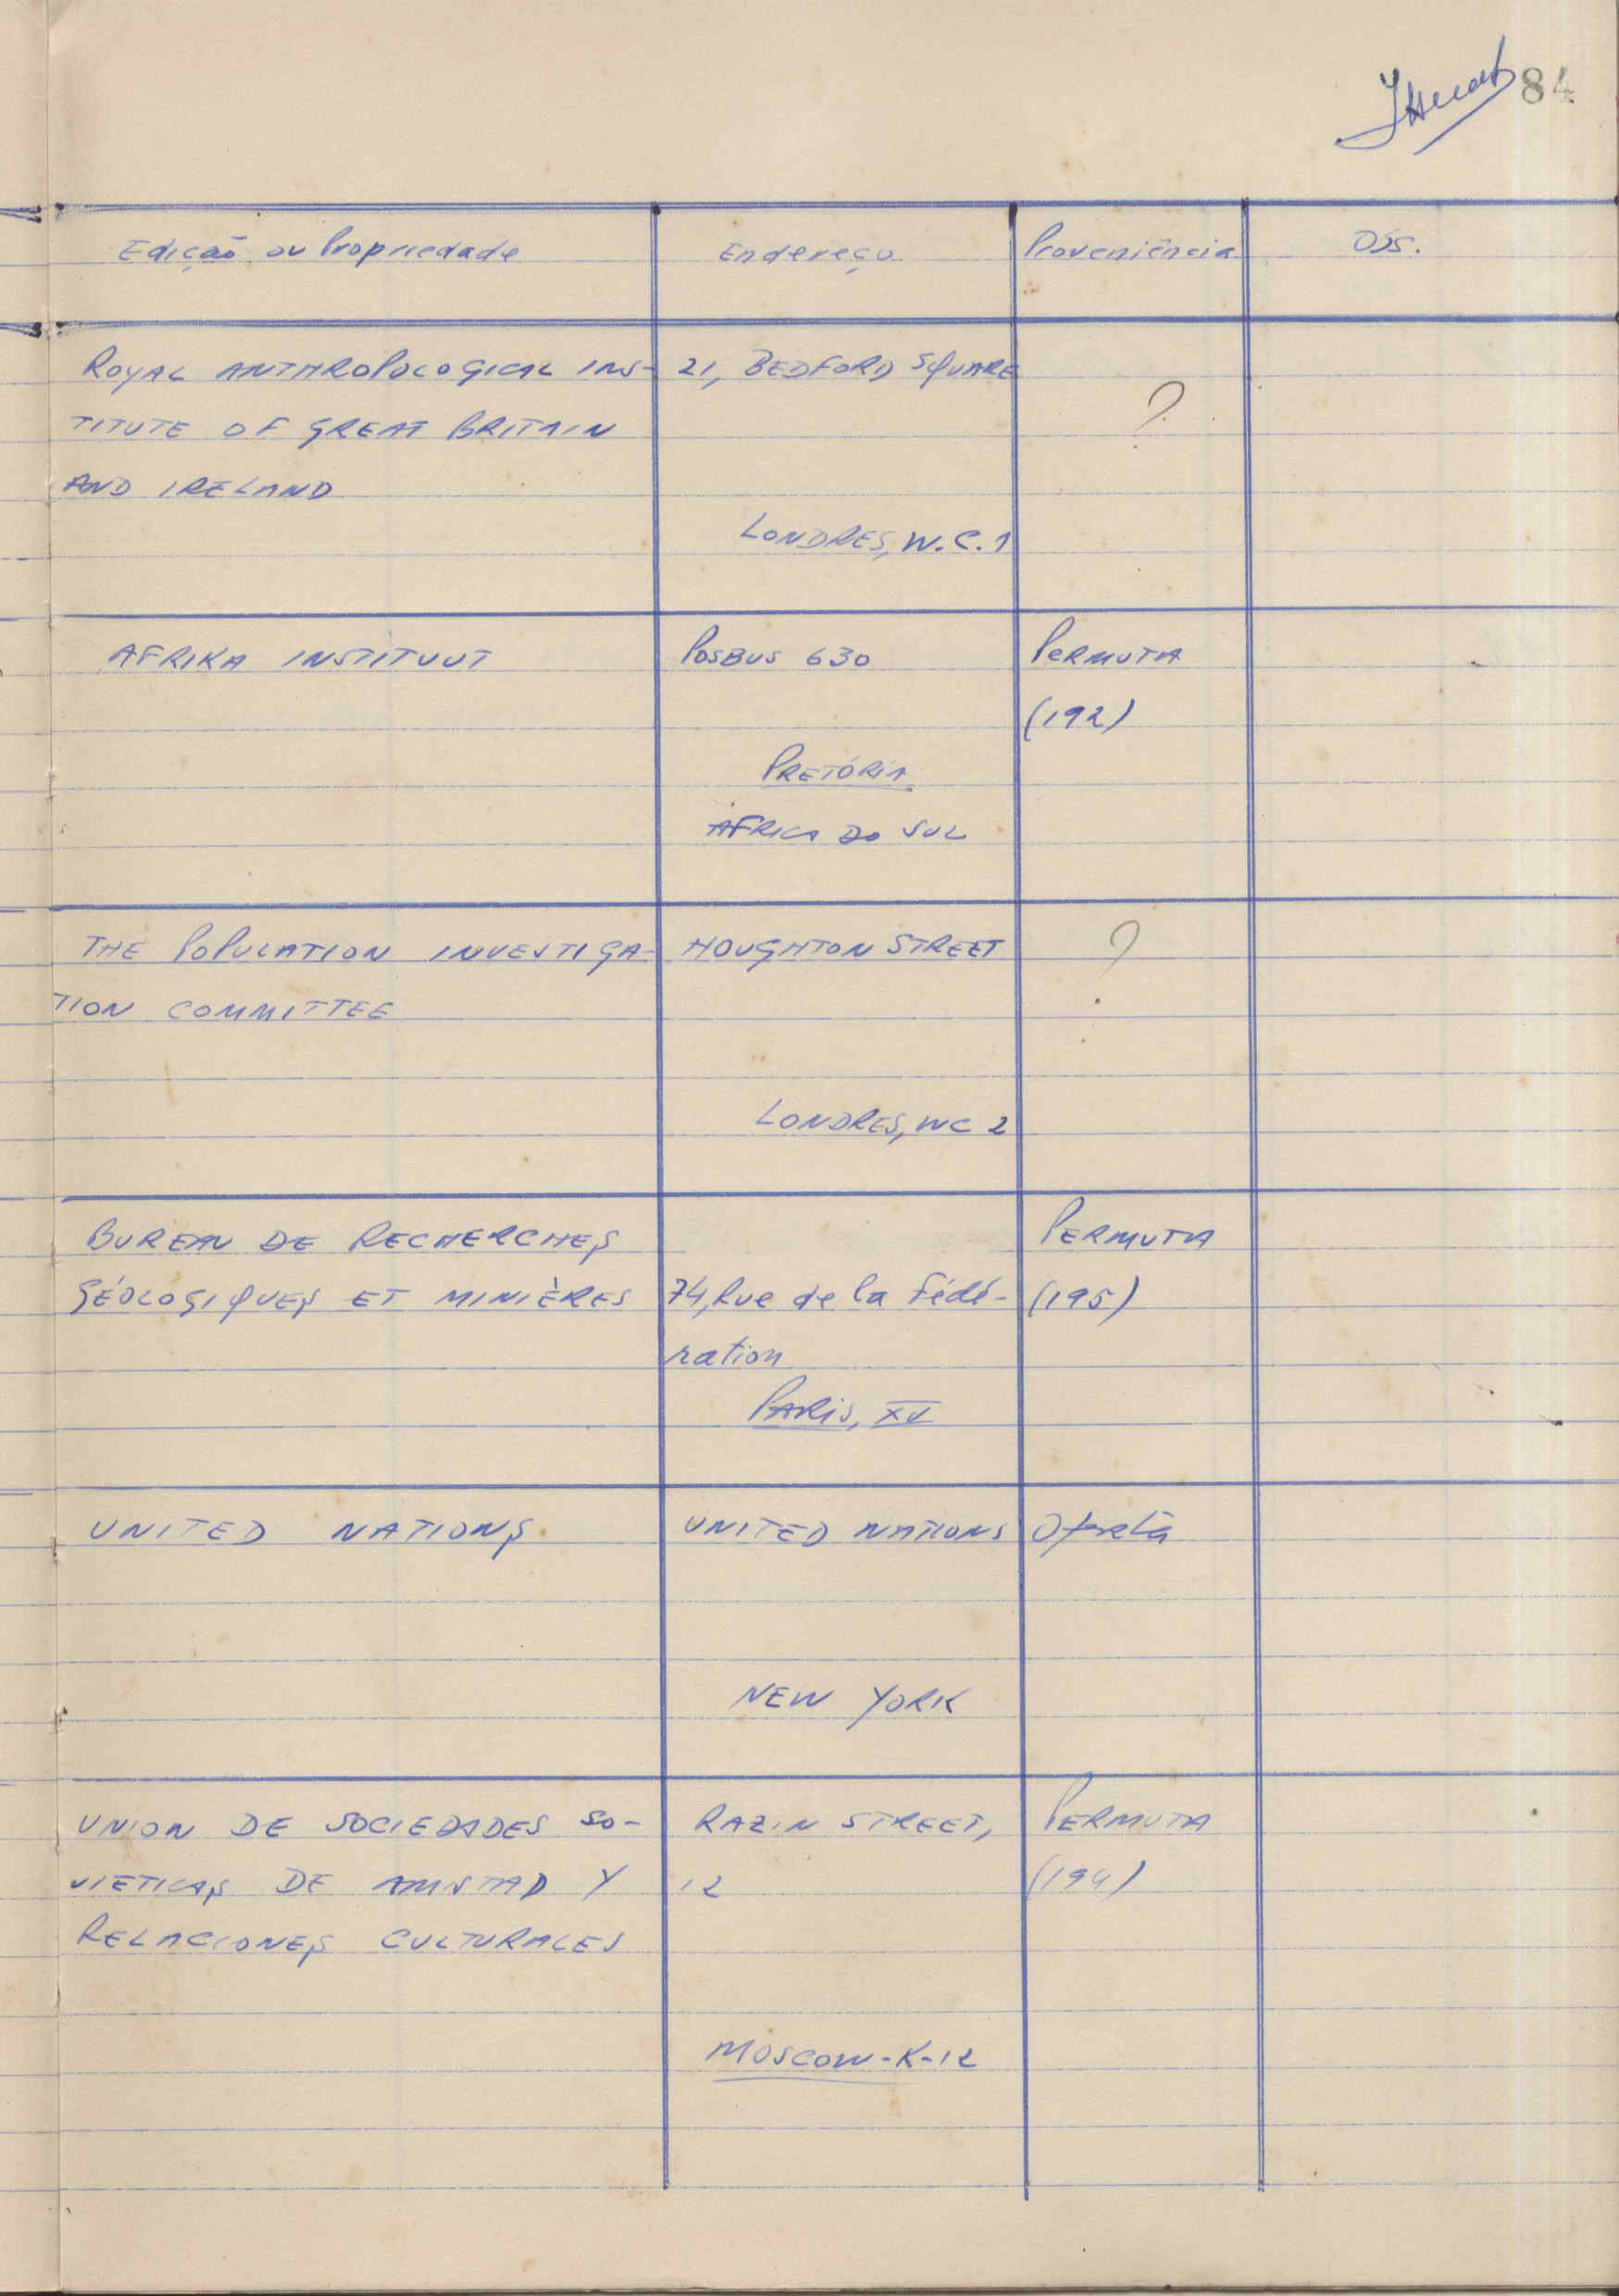 84
Edição ou Propriedade Endereço Proveniência Obs.
ROYAL ANTHROPOLOGICAL INS- 21, BEDFORD SQUARE
?
TITUTE OF GREAT BRITAIN
AND IRELAND
LONDRES, W.C.1
AFRIKA INSTITUUT POSBUS 630 PERMUTA
(192)
PRETÓRIA
ÁFRICA DO SUL
THE POPULATION INVESTIGA- HOUGHTON STREET ?
TION COMMITTEE
LONDRES, WC 2
BUREAU DE RECHERCHES PERMUTA
GÉOLOGIQUES ET MINIÈRES 74, Rue de la Fédé- (195)
ration
PARIS, XV
UNITED NATIONS UNITED NATIONS Oferta
NEW YORK
UNION DE SOCIEDADES SO- RAZIN STREET, PERMUTA
VIETICAS DE AMISTAD Y 12 (194)
RELACIONES CULTURALES
MOSCOW-K-12